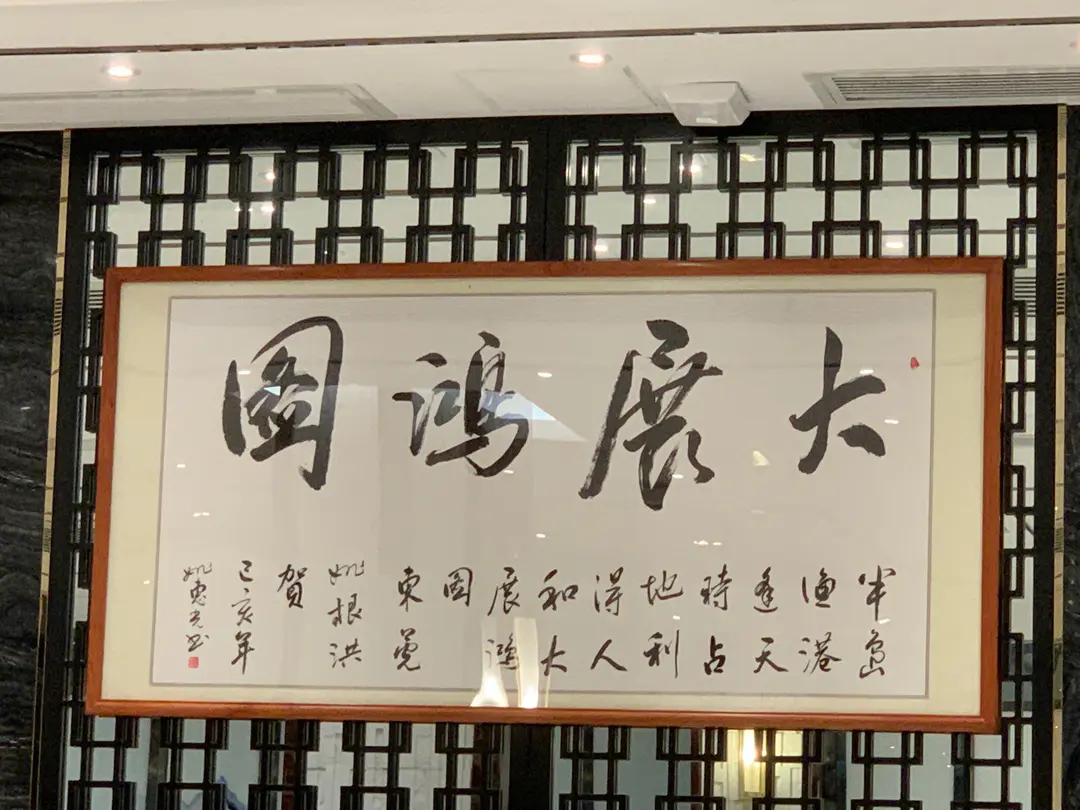 大展鴻圖
半島
漁港
逢天
時占
地利
得人
和大
展鴻
圖
東莞
姚根洪
賀
己亥年
姚惠光书